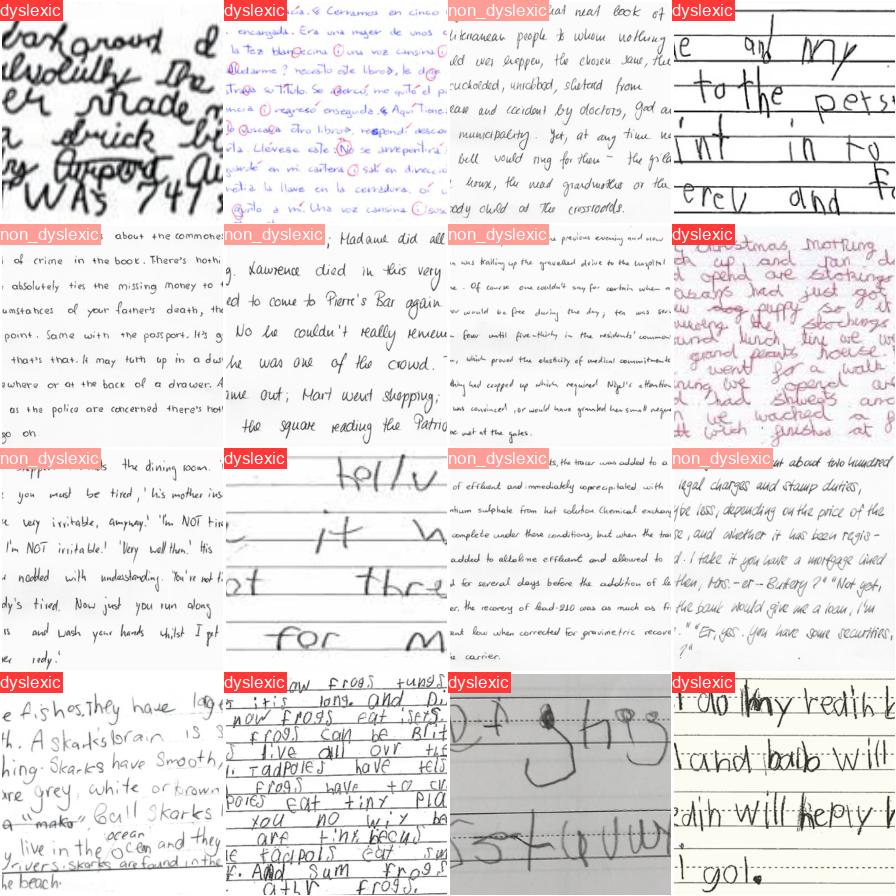 dyslexic
background d
The
er made
a brick bi
by Airport au
WAS 747 s
dyslexic
Cerramos en cinco
encargada. Era una mujer de unos c
la Tez blanquecina y una voz cansina
Ayudarme? necesito este libro, le dije
regresó enseguida. Aquí Tiene
otro libro, respondí
ría. Llévese este. No se arrepentirá
guardé en mi cartera y salí en direcció
metía la llave en la cerradura, oí u
junto a mí. Una voz cansina y sus
non_dyslexic
that neat look of
people to whom nothing
uld ever happen, the chosen sane, the
cuckolded, unrobbed, sheltered from
ease and accident by doctors, god an
municipality. Yet, at any time ne
bell would ring for them - the gilla
house, the mad grandmother or the
body child at the crossroads.
dyslexic
e and my
to the pers
int in to
erev and f
non_dyslexic
about the commones
of crime in the book. There's nothi
absolutely ties the missing money to t
umstances of your father's death, the
point. Same with the passport. It's g
that's that. It may turn up in a dus
ewhere or at the back of a drawer. A
as the police are concerned there's not
go on
non_dyslexic
; Madame did all
g. Lawrence died in this very
ed to come to Pierre's Bar again
No he couldn't really remem
he was one of the crowd.
ame out; Mart went shopping;
the square reading the Patrio
non_dyslexic
he previous evening and now
was trailing up the gravelled drive to the hospital
. Of course one couldn't say for certain when a
er would be free during the day; ten was
four until five-thirty in the residents' common
, which proved the elasticity of medical commitments
thing had cropped up which required Nigel's attention
was convinced, or would have granted her small reques
be met at the gates.
dyslexic
Christmas morning
ch up and ran do
d opend are stockings
had just got
ew dog puppy so it
the stockings
ound lunch time we w
grand perants house
went for a walk
ning we opend a
d had sweets and
n we wached a f
witch finishes at
non_dyslexic
the dining room. 'Y
you must be tired,' his mother ins
e very irritable, anyway.' 'I'm NOT tire
I'm NOT irritable.' 'Very well then.' His
nodded with understanding. 'You're not ti
dy's tired. Now just you run along
rs and wash your hands whilst I get
er ready.'
dyslexic
hel/v
it h
at thre
for m
non_dyslexic
ts, the tracer was added to a
of effluent and immediately coprecipitated with
ntium sulphate from hot solution Chemical exchang
complete under these conditions, but when the trac
added to alkaline effluent and allowed to
d for several days before the addition of le
er, the recovery of lead-210 was as much as fi
ent low when corrected for gravimetric recover
e carrier.
non_dyslexic
ut about two hundred
legal charges and stamp duties,
ybe less, depending on the price of the
se, and whether it has been regis-
d. I take it you have a mortgage lined
then, Mrs. - er - Buttery?" "Not yet,
the bank would give me a loan, I'm
." "Er, yes. You have some securities,
?"
dyslexic
e fishes, they have large
th. A skarks brain is s
hing. Skarks have smooth,
are grey, white or brown
a "mako" Bull Skarks l
ocean
live in the ocen and they
y rivers. skarks are found in the
he beach.
dyslexic
ow frogs tungs
s itis long. and Di
now frogs eat isers
frogs can be Brit
s live all ovr the
. Tadpoles have tels
frogs have to cu
poles eat tiny pla
you no wiy be
are tinx becus
e tadpols eat sum
f. And sum frogs
athr frogs.
dyslexic
dyslexic
I do my redih k
I and bab will
edih will heply h
I gol.